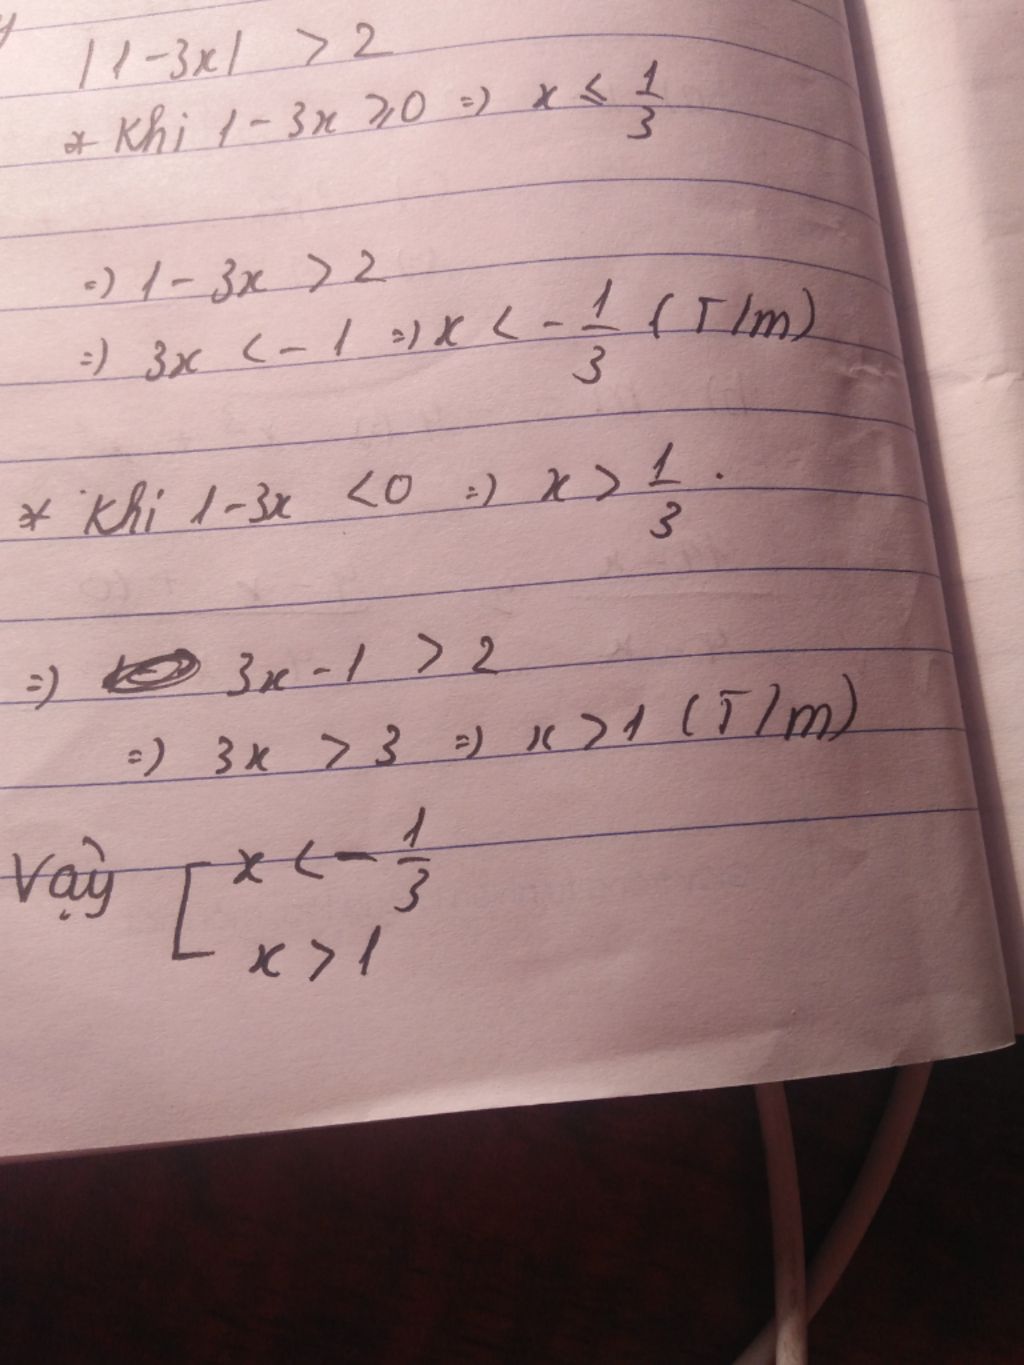 |1-3x| > 2
* Khi 1-3x ⩾ 0 => x ⩽ 1/3
=> 1-3x > 2
=> 3x < -1 => x < -1/3 (T/m)
* Khi 1-3x < 0 => x > 1/3.
=> 3x-1 > 2
=> 3x > 3 => x > 1 (T/m)
Vậy [ x < -1/3
x > 1